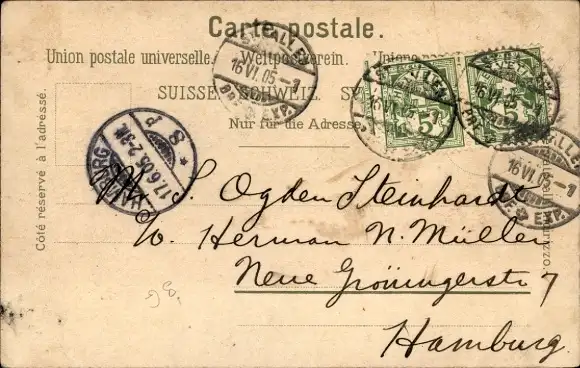 Carte postale.
Union postale universelle. Weltpostverein. Unione
SUISSE. SCHWEIZ.
Nur für die Adresse
Côté réservé à l'adresse.
ST. GALLEN
16 VI. 05 - 1
BRF. EXP.
5 5
16 VI. 05 - 1
EXP.
HAMBURG
17.6.05. 2-3 N.
* 8 P
S. Ogden Steinhardt
Herman N. Müller
Neue Gröningerstr 7
Hamburg.
98.